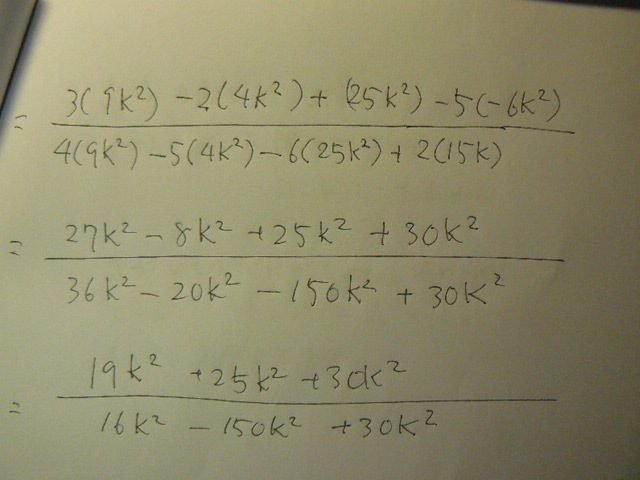 = 3(9k²) - 2(4k²) + (25k²) - 5(-6k²)
4(9k²) - 5(4k²) - 6(25k²) + 2(15k)
= 27k² - 8k² + 25k² + 30k²
36k² - 20k² - 150k² + 30k²
= 19k² + 25k² + 30k²
16k² - 150k² + 30k²